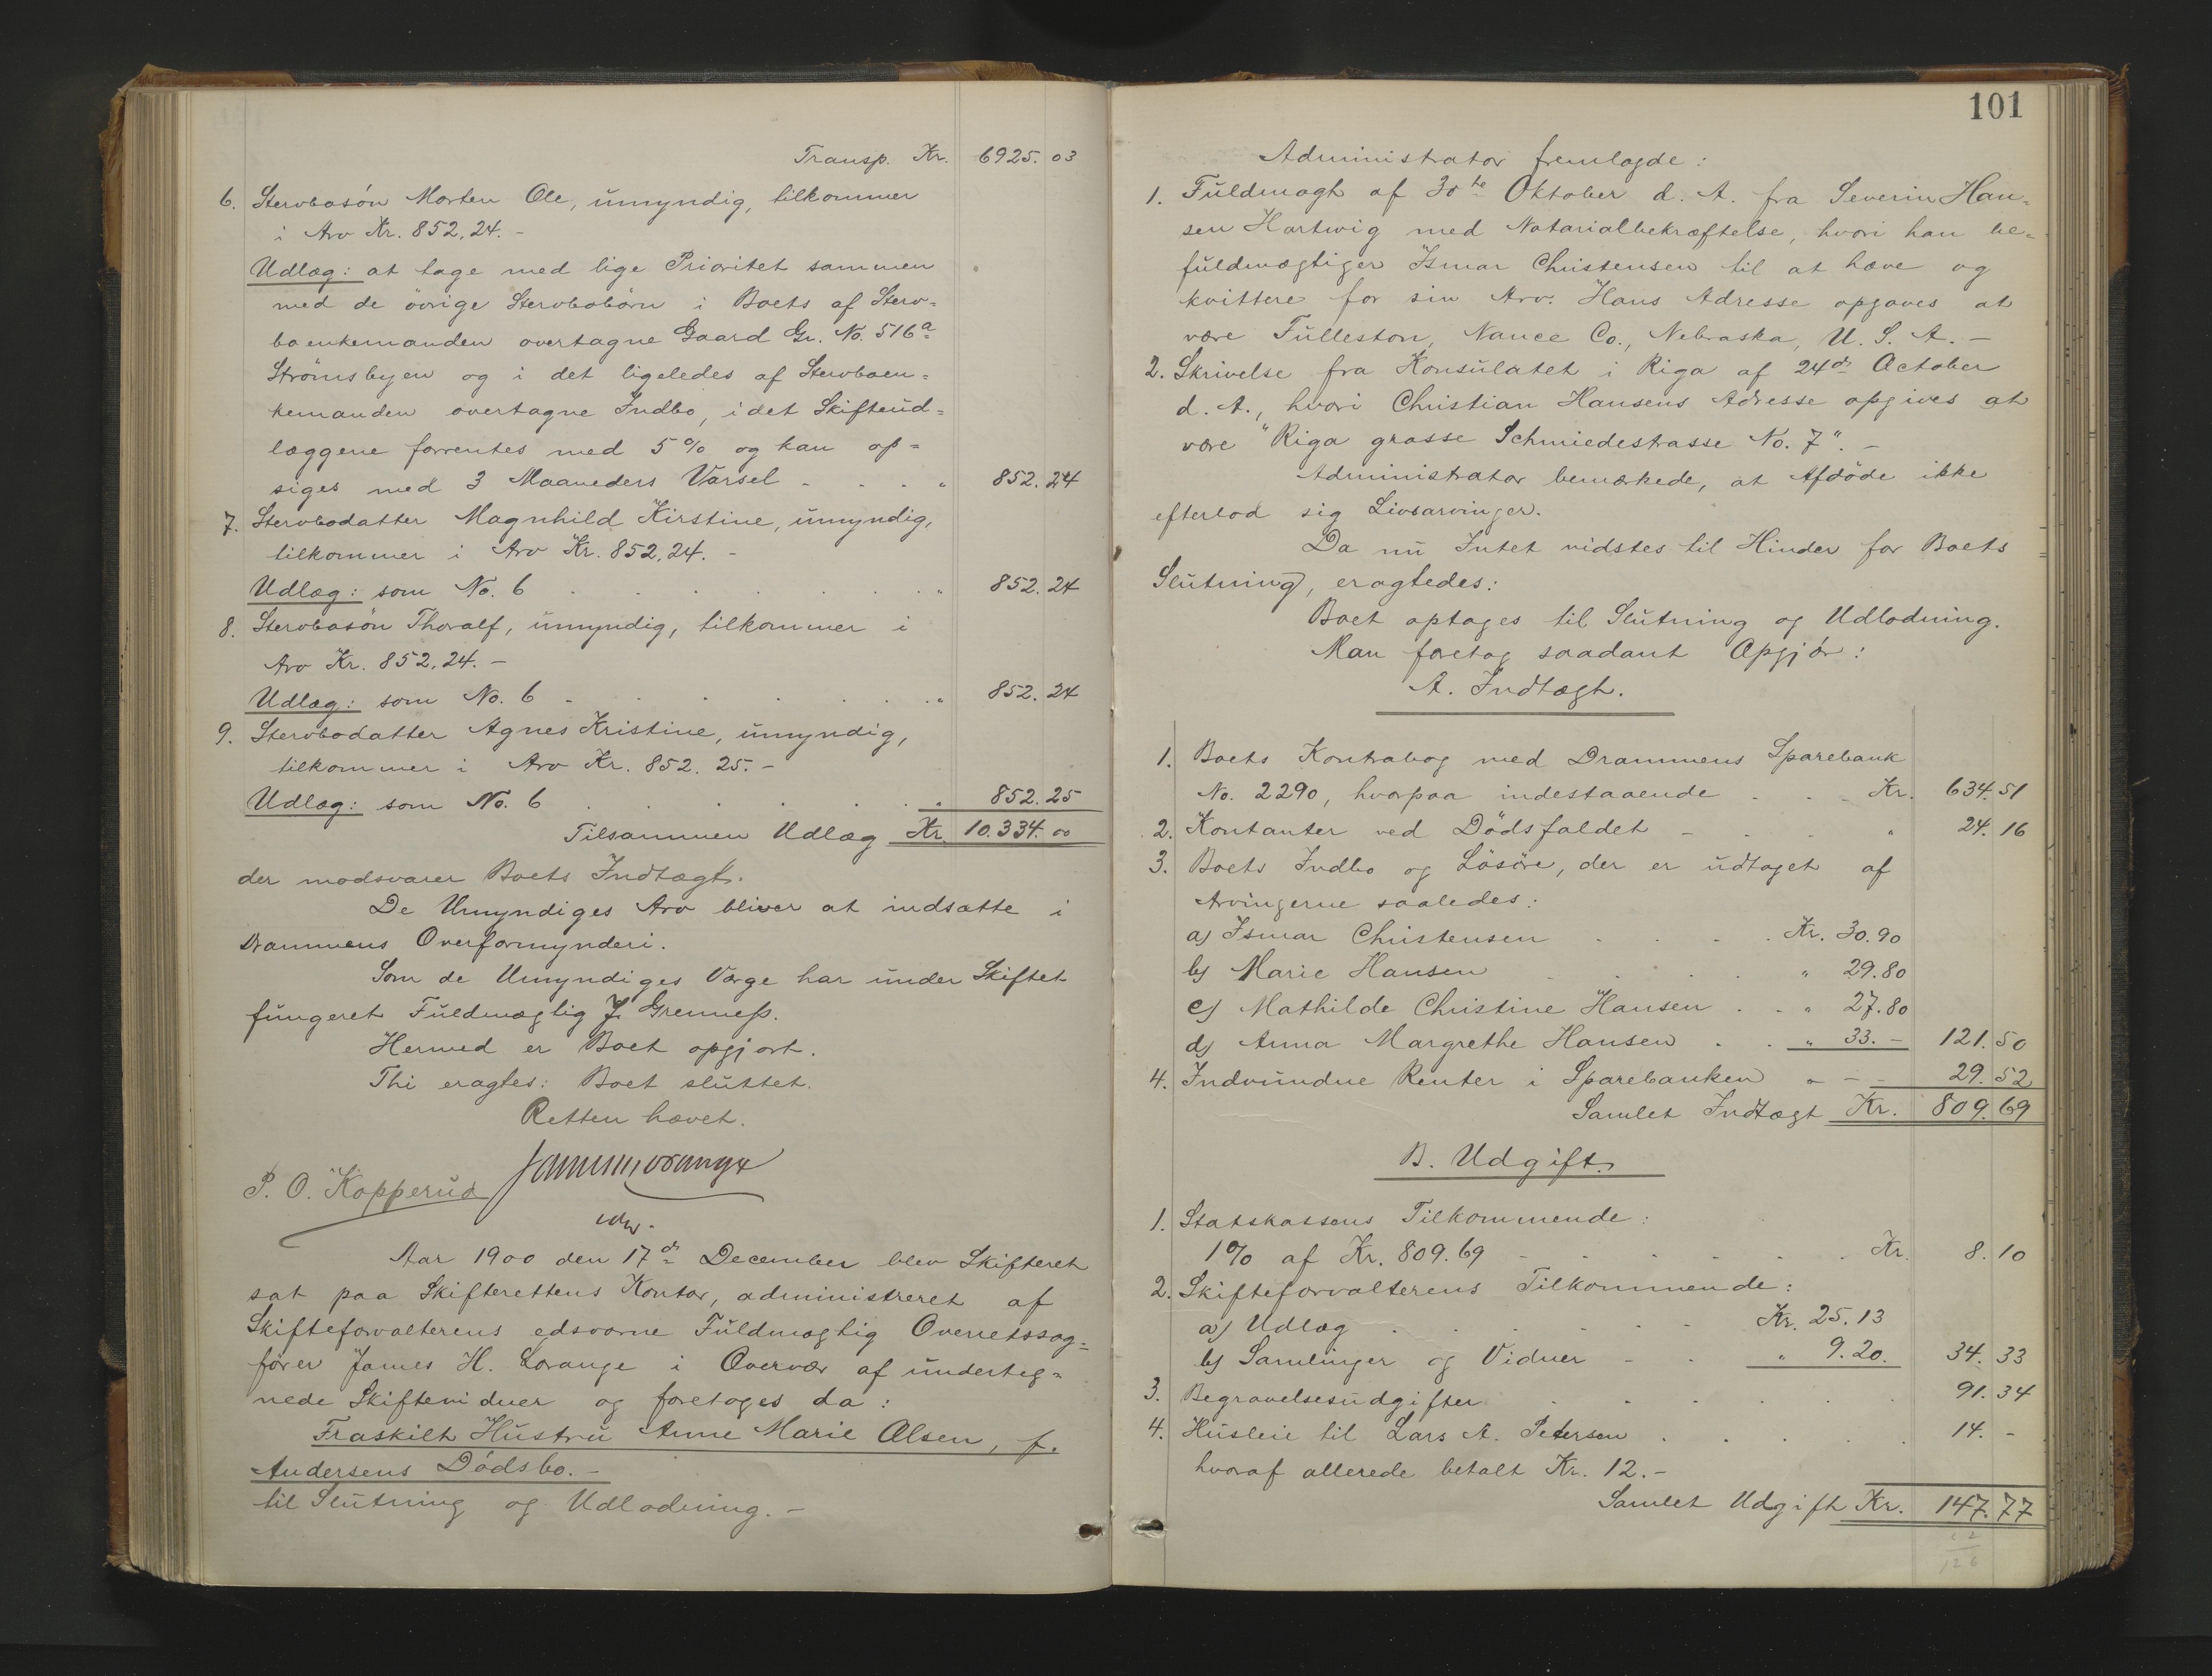 Transp. Kr. 6925. 03
6. Stervbosön Morten Ole, umyndig, tilkommer
i Arv Kr. 852,24. -
Udlæg: at tage med lige Prioritet sammen
med de övrige Stervbobörn i Boets af Sterv=
boenkemanden overtagne Gaard Gr. No. 516a
Strömsbyen og i det ligeledes af Stervboen=
kemanden overtagne Indbo, idet Skifteud=
læggene forrentes med 5% og kan op=
siges med 3 Maaneders Varsel - . . " 852. 24
7. Stervbodatter Magnhild Kirstine, umyndig,
tilkommer i Arv Kr. 852,24. -
Udlæg: som No. 6 . . . . . " 852. 24
8. Stervbosön Thoralf, umyndig, tilkommer i
Arv Kr. 852,24. -
Udlæg: som No. 6 - . . . . " 852. 24
9. Stervbodatter Agnes Kristine, umyndig,
tilkommer i Arv Kr. 852. 25. -
Udlæg: som No. 6 . . . . . " 852. 25
Tilsammen Udlæg Kr. 10.334. 00
der modsvarer Boets Indtægt.
De Umyndiges Arv bliver at indsætte i
Drammens Overformynderi.
Som de Umyndiges Værge har under Skiftet
fungeret Fuldmægtig J. Grenness.
Hermed er Boet opgjort.
Thi eragtes: Boet sluttet.
Retten hævet.
P. O. Kopperud
Aar 1900 den 17de December blev Skifteret
sat paa Skifterettens Kontor, administreret af
Skifteforvalterens edsvorne Fuldmægtig Overretssag=
förer James H. Lorange i Overvær af underteg=
nede Skiftevidner og foretoges da:
Fraskilt Hustru Anne Marie Olsen, f.
Andersens Dödsbo. -
til Slutning og Udlodning. -
101
Administrator fremlagde:
1. Fuldmagt af 30te Oktober d. A. fra Severin Han=
sen Hartwig med Notarialbekræftelse, hvori han be=
fuldmægtiger Ismar Christensen til at hæve og
kvittere for sin Arv. Hans Adresse opgaves at
være Fulleston, Nance Co., Nebraska, U. S. A. -
2. Skrivelse fra Konsulatet i Riga af 24de October
d. A., hvori Christian Hansens Adresse opgives at
være "Riga grosse Schmiedestrasse No. 7". -
Administrator bemærkede, at Afdöde ikke
efterlod sig Livsarvinger.
Da nu Intet vidstes til Hinder for Boets
Slutning, eragtedes:
Boet optages til Slutning og Udlodning.
Man foretog saadant Opgjör:
A. Indtægt.
1. Boets Kontrabog med Drammens Sparebank
No. 2290, hvorpaa indestaaende . . - Kr. 634. 51
2. Kontanter ved Dödsfaldet - . . " 24. 16
3. Boets Indbo og Lösöre, der er udtaget af
Arvingerne saaledes:
a) Ismar Christensen . . . . Kr. 30.90
b) Marie Hansen . . . . " 29.80
c) Mathilde Christine Hansen . . " 27.80
d) Anna Margrethe Hansen . . " 33. - 121. 50
4. Indvundne Renter i Sparebanken " - - 29. 52
Samlet Indtægt Kr. 809. 69
B. Udgift.
1. Statskassens Tilkommende:
1% af Kr. 809.69 - . . . . . Kr. 8. 10
2. Skifteforvalterens Tilkommende:
a) Udlæg . . . . - - Kr. 25.13
b) Samlinger og Vidner - . " 9.20. 34. 33
3. Begravelsesudgifter . . . . . 91. 34
4. Husleie til Lars A. Petersen . . . . . 14. -
hvoraf allerede betalt Kr. 12. -
Samlet Udgift Kr. 147. 77